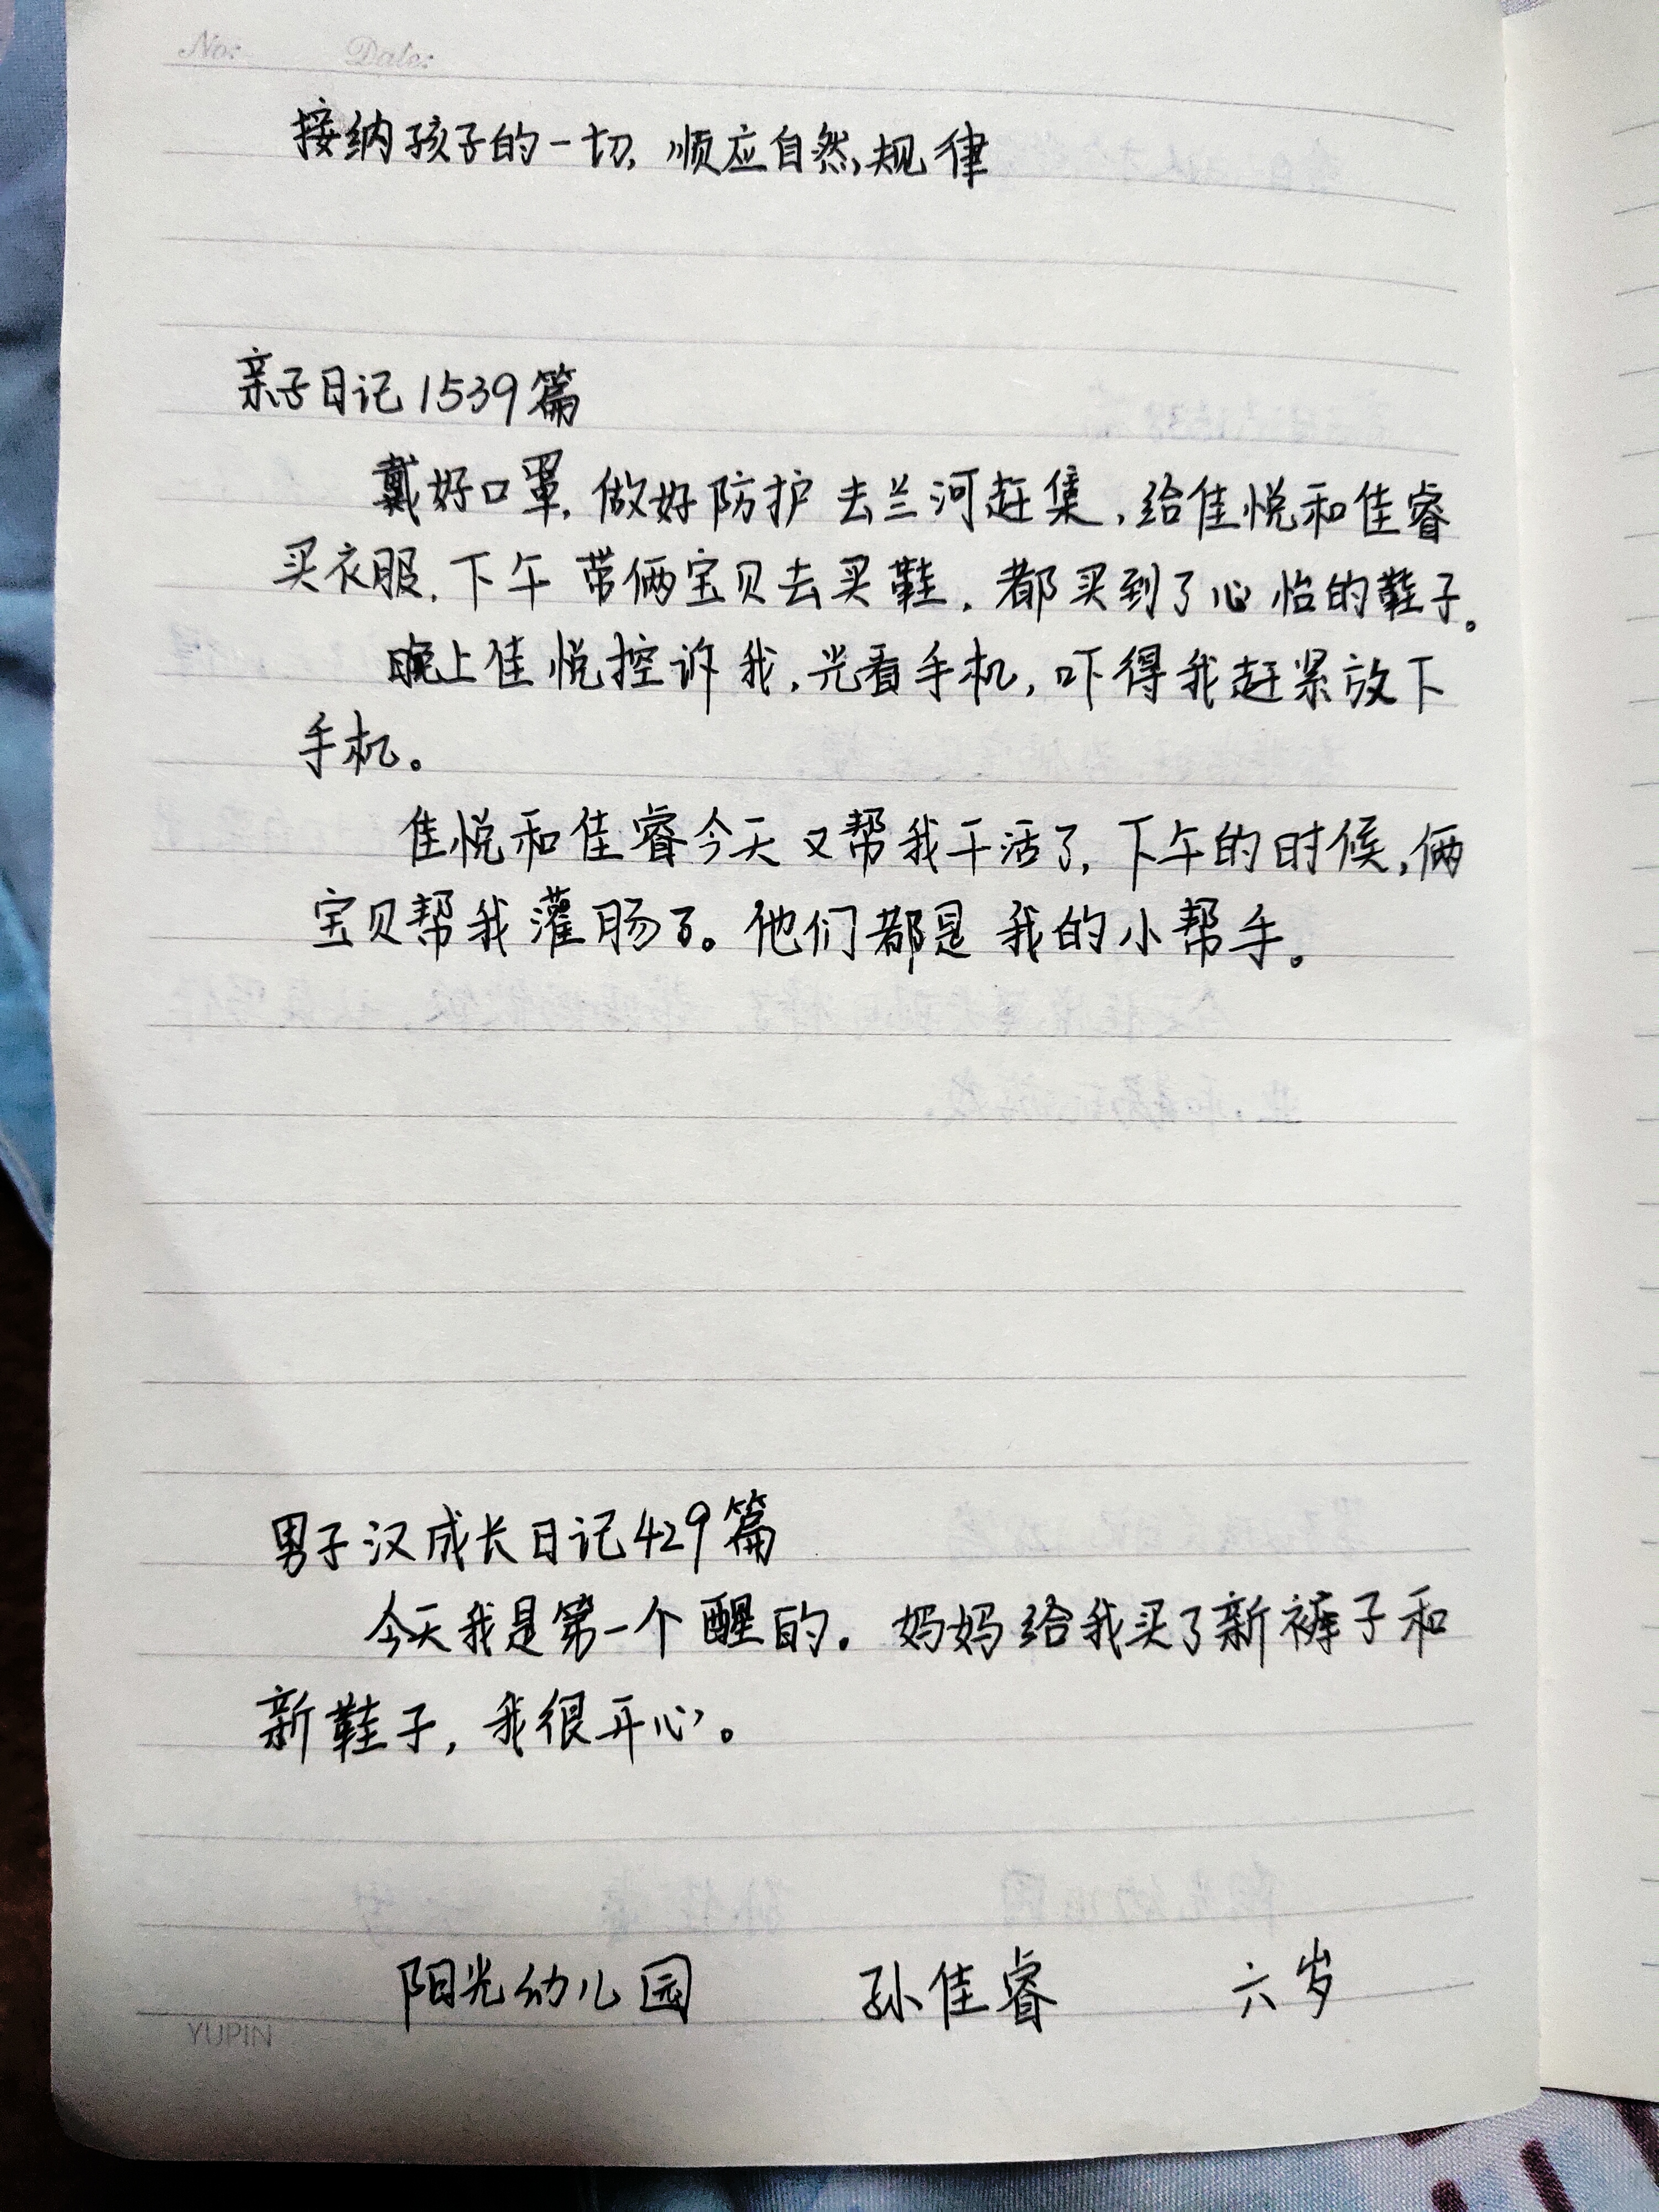 No: Date:
接纳孩子的一切，顺应自然规律
亲子日记1539篇
戴好口罩，做好防护去兰河赶集，给佳悦和佳睿
买衣服，下午带俩宝贝去买鞋，都买到了心怡的鞋子。
晚上佳悦控诉我，光看手机，吓得我赶紧放下
手机。
佳悦和佳睿今天又帮我干活了，下午的时候，俩
宝贝帮我灌肠了。他们都是我的小帮手。
男子汉成长日记429篇
今天我是第一个醒的。妈妈给我买了新裤子和
新鞋子，我很开心。
阳光幼儿园 孙佳睿 六岁
YUPIN